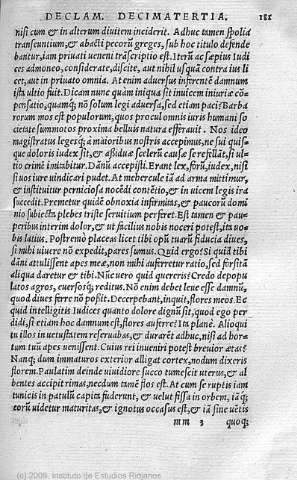 DECLAM. DECIMATERTIA. 181
nisi cum & in alterum diuitem inciderit. Adhuc tamen spolia
transeuntium, & abacti pecorũ greges, sub hoc titulo defende
bantur, iam priuati ueneni trãscriptio est. Iterũ ac sæpius Iudi
ces admoneo, considerate, discite, aut nihil usquã contra ius li
cet, aut in priuato omnia. At enim aduersus infrenẽté damnum
ista ultio fuit. Dicam nunc quam iniqua sit inuicem iniuriæ cõ
pensatio, quamq; nõ solum legi aduersa, sed etiam paci? Barba
rorum mos est populorum, quos procul omnis iuris humani so
cietate summotos proxima belluis natura efferauit. Nos ideo
magistratus legesq; à maioribus nostris accepimus, ne sui quis-
que doloris iudex sit, & assiduæ scelerũ causæ se refellãt, si ul-
tio crimẽ imitabitur. Dãnũ accepisti. Erant lex, forũ, iudex, nisi
si uos iure uindicari pudet. At mehercule iã ad arma mittimur,
& instituitur perniciosa nocẽdi contẽtio, & in uicem legis ira
succedit. Premetur quidẽ obnoxia infirmitas, & paucorũ domi
nio subiecta plebes tristẽ seruitium perferet. Est tamen & pau-
peribus interim dolor, & ut facilius nobis noceri potest, ita uo-
bis latius. Postremò placeas licet tibi opũ tuarũ fiducia diues,
si mihi uiuere nõ expedit, pares sumus. Quid ergo? Si quid tibi
dãni attulissent apes meæ, non mihi auferretur ratio, sed forsitã
aliqua daretur & tibi. Nũc uero quid quereris? Credo depopu
latos agros, euersosq; reditus. Nõ enim debet leue esse damnũ,
quod diues ferre nõ possit. Decerpebant, inquit, flores meos. Ec
quid intelligitis Iudices quanto dolore dignũ sit, quod ego per
didi, si etiam hoc damnum est, flores auferre? Ita planè. Alioqui
tu illos in uetustatem reseruabas, & durarẽt adhuc, nisi ad hor-
tum tuũ apes uenissent. Cuius rei inueniri potest breuior ætas?
Nanq; dum immaturos exterior alligat cortex, nodum dixeris
florem. Paulatim deinde uiuidiore succo tumescit uterus, & al
bentes accipit rimas, necdum tamẽ flos est. At cum se ruptis iam
tunicis in patuli capita fuderunt, & uelut fissa in orbem, iã q;
terũ uidetur maturitas, & ignotus occasus est, & iã sine uẽtis
mm 3 quoq;
(c) 2009. Instituto de Estudios Riojanos